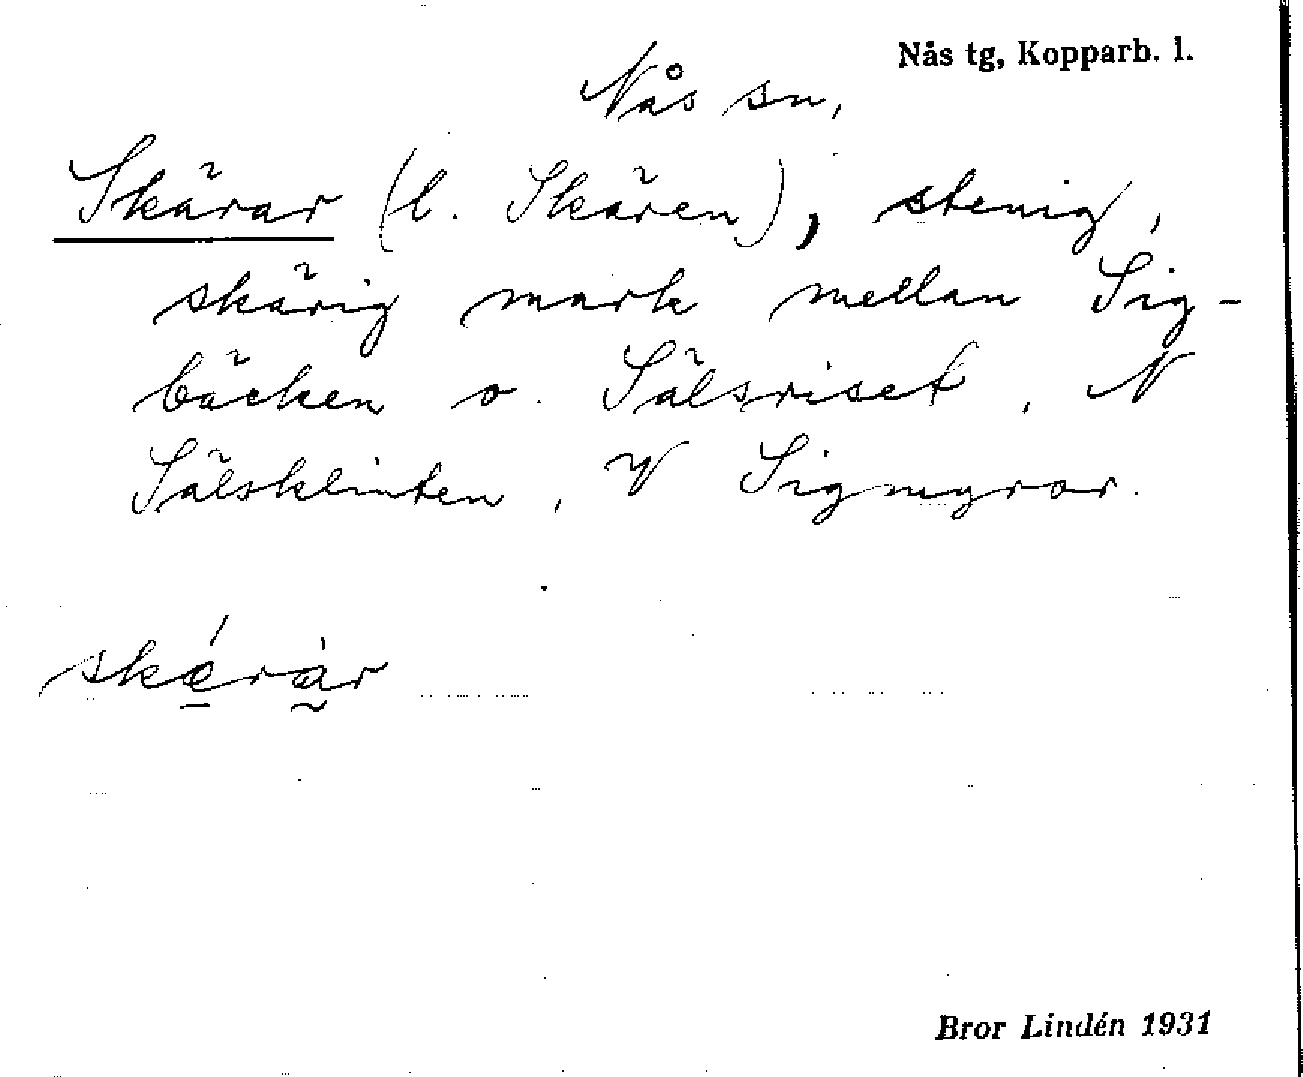 Nås tg, Kopparb. l.
Nås sn,
Skärar (l. Skären), stenig,
skärig mark mellan Sig-
bäcken o. Sälsriset, N
Sälsklinten, V Sigmyror.
skǽràr
Bror Lindén 1931